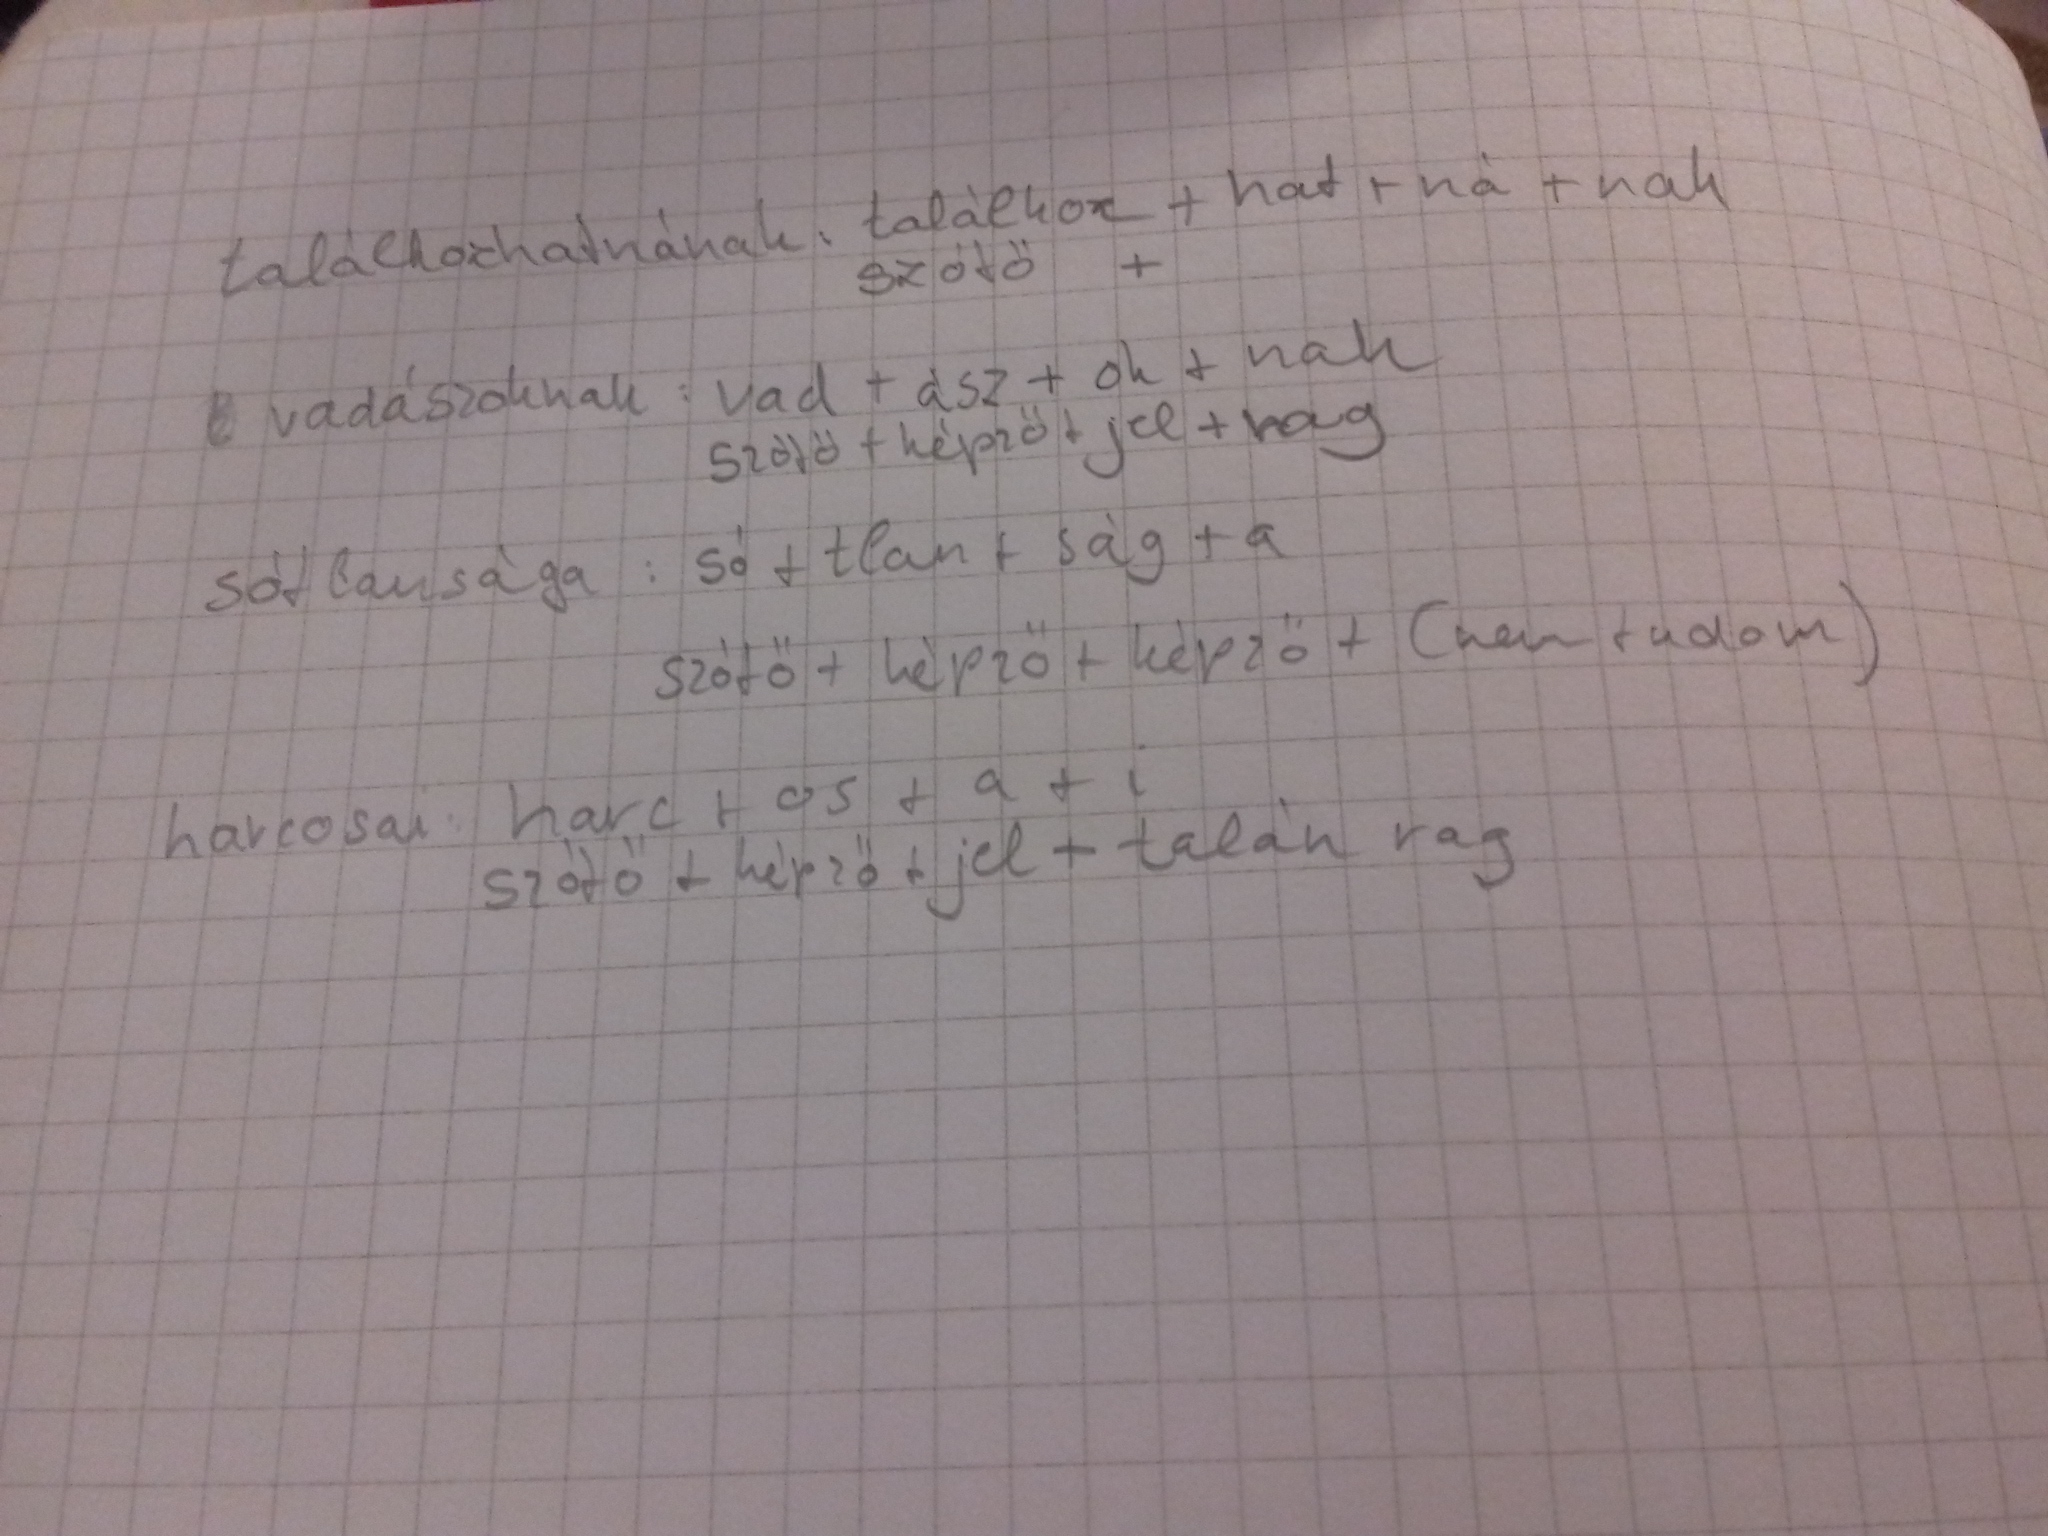 találkozhatnának: találkoz + hat + ná + nak
szótő +
vadászoknak: vad + ász + ok + nak
szótő + képző + jel + rag
sótlansága: só + tlan + ság + a
szótő + képző + képző + (nem tudom)
harcosai: harc + os + a + i
szótő + képző + jel + talán rag